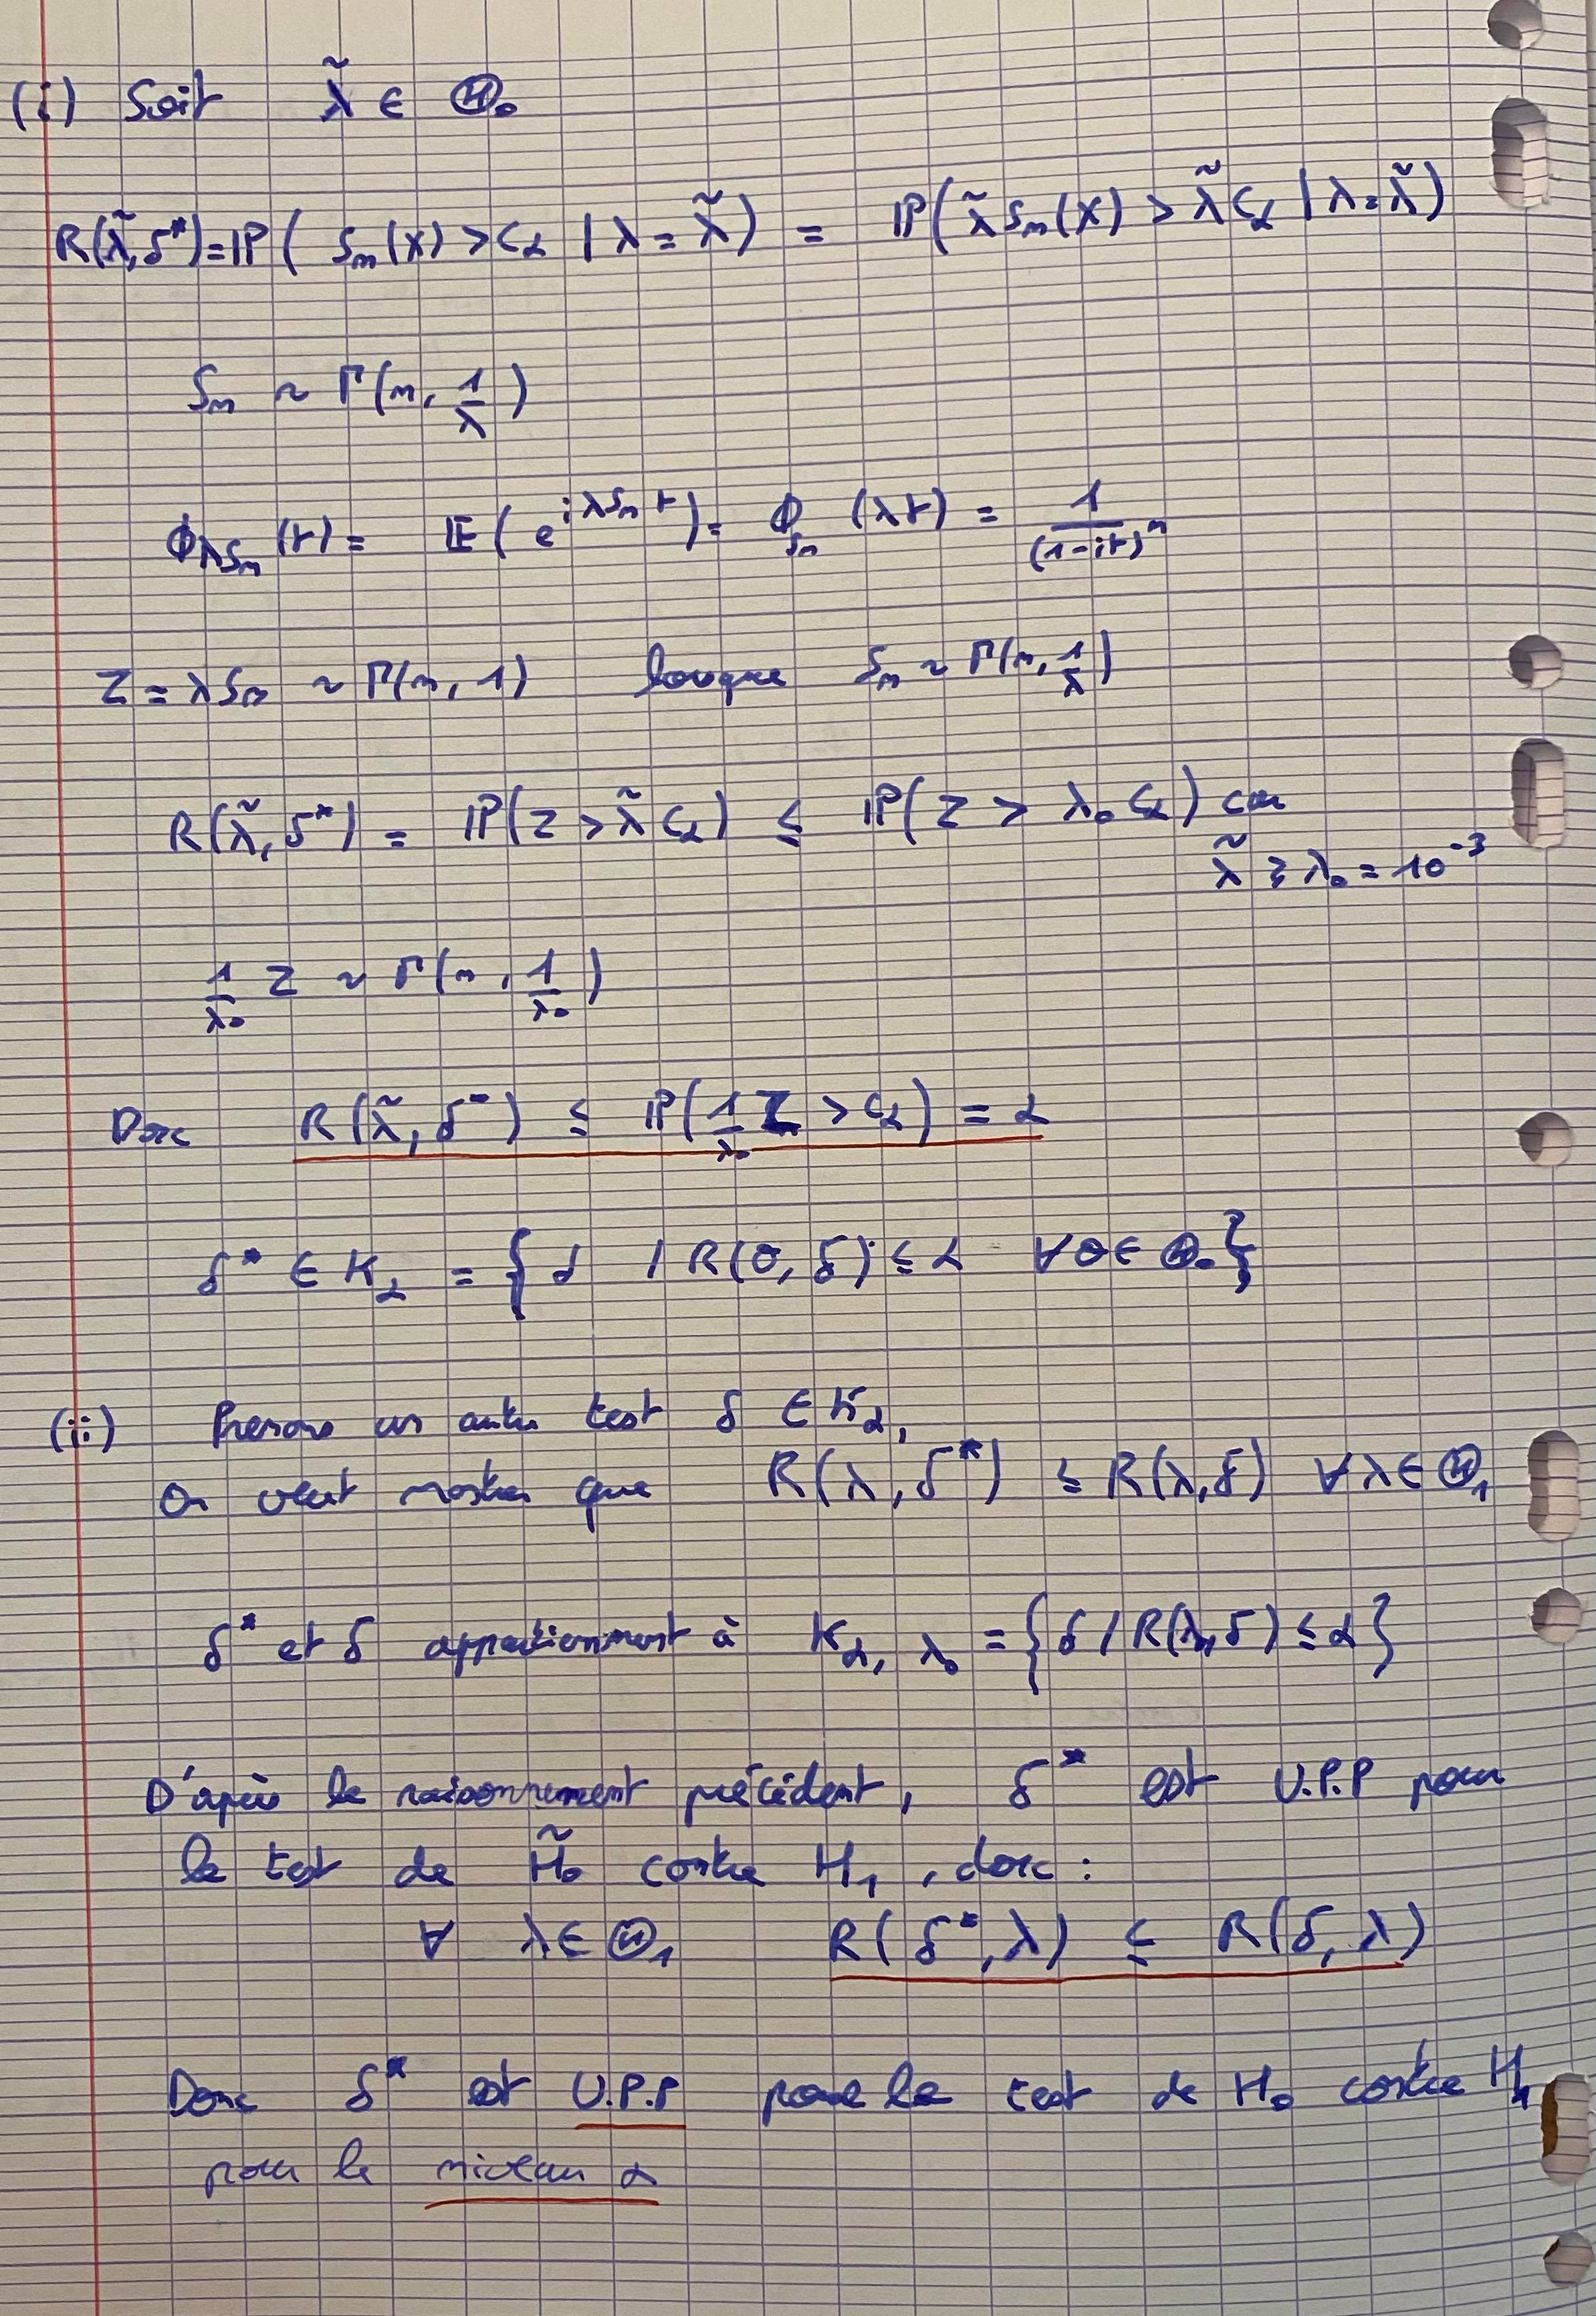 (i) Soit λ̃ ∈ Θ₀
R(λ̃, δ*) = ℙ( Sₙ(X) > c_α | λ = λ̃ ) = ℙ( λ̃ Sₙ(X) > λ̃ c_α | λ = λ̃ )
Sₙ ~ Γ(n, 1/λ)
ϕ_{λSₙ}(t) = 𝔼( e^{iλSₙt} ) = ϕ_{Sₙ}(λt) = 1/(1-it)ⁿ
Z = λSₙ ~ Γ(n, 1) lorsque Sₙ ~ Γ(n, 1/λ)
R(λ̃, δ*) = ℙ( Z > λ̃ c_α ) ≤ ℙ( Z > λ₀ c_α ) car
λ̃ ≥ λ₀ = 10⁻³
1/λ₀ Z ~ Γ(n, 1/λ₀)
Donc R(λ̃, δ*) ≤ ℙ( 1/λ₀ Z > c_α ) = α
δ* ∈ K_α = { δ / R(θ, δ) ≤ α ∀θ ∈ Θ₀ }
(ii) Prenons un autre test δ ∈ K_α,
On veut montrer que R(λ, δ*) ≤ R(λ, δ) ∀λ ∈ Θ₁
δ* et δ appartiennent à K_{α, λ₀} = { δ / R(λ₀, δ) ≤ α }
D'après le raisonnement précédent, δ* est U.P.P pour
le test de H̃₀ contre H₁, donc :
∀ λ ∈ Θ₁ R(δ*, λ) ≤ R(δ, λ)
Donc δ* est U.P.P pour le test de H₀ contre H₁
pour le niveau α